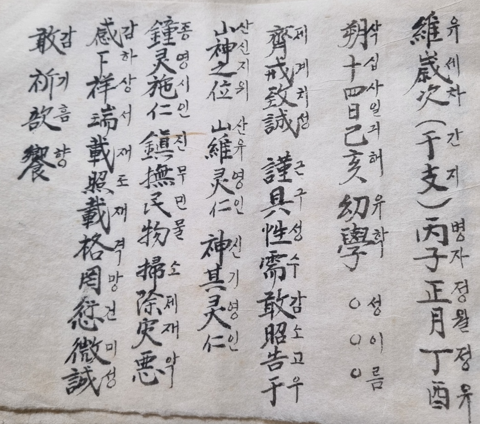 維歲次(干支)丙子正月丁酉
유세차 간지 병자정월정유
朔十四日己亥 幼學 ○○○
삭십사일긔해 유학 성이름
齊戒致誠 謹具性需敢昭告于
제계치성 근구성수감소고우
山神之位 山維灵仁 神其灵仁
산신지위 산유영인 신기영인
鐘灵施仁 鎭撫民物 掃除灾悪
종영시인 진무민물 소제재악
感下祥瑞載照載格罔愆微誠
감하상서재조재격망건미성
敢祈歆饗
감기흠향